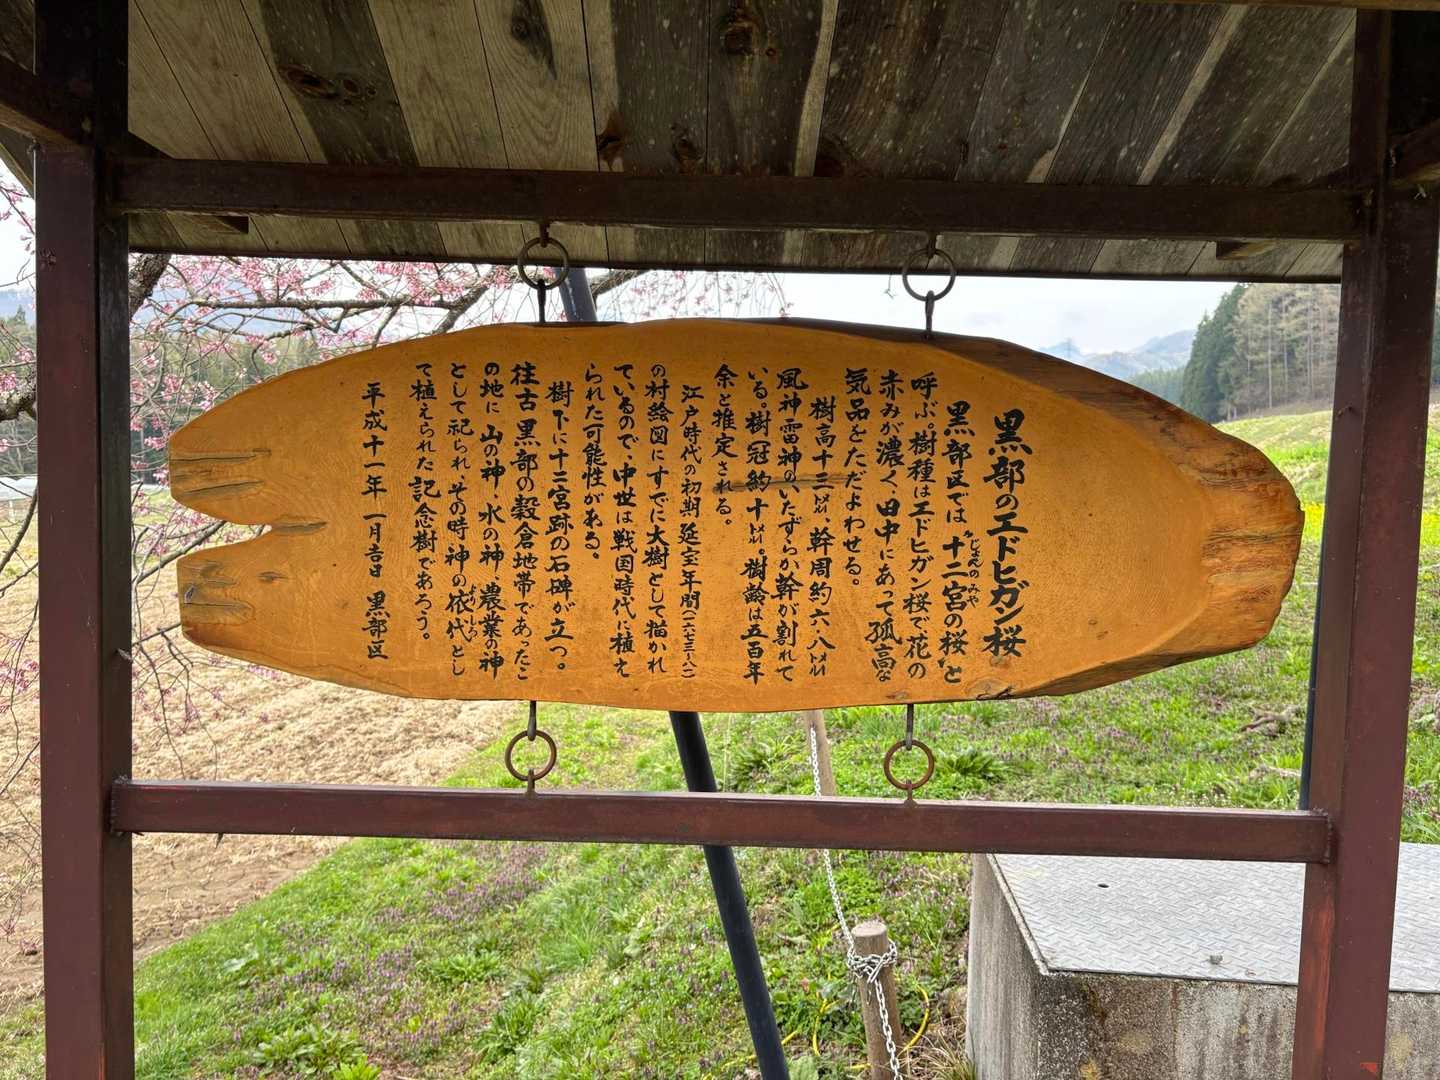 黒部のエドヒガン桜
黒部区では〝十二宮の桜〟と
じょんのみや
呼ぶ。樹種はエドヒガン桜で花の
赤みが濃く、田中にあって孤高な
気品をただよわせる。
樹高十三㍍、幹周約六・八㍍
風神雷神のいたずらか幹が割れて
いる。樹冠約十㍍。樹齢は五百年
余と推定される。
江戸時代の初期延宝年間(一六七三〜八一)
の村絵図にすでに大樹として描かれ
ているので、中世は戦国時代に植え
られた可能性がある。
樹下に十三宮跡の石碑が立つ。
往古黒部の穀倉地帯であったこ
の地に山の神、水の神、農業の神
として祀られ、その時神の依代とし
よりしろ
て植えられた記念樹であろう。
平成十一年 一月吉日 黒部区